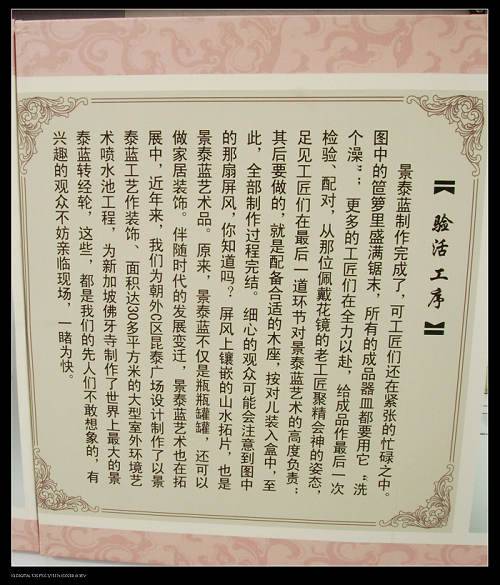 【验活工序】
景泰蓝制作完成了，可工匠们还在紧张的忙碌之中。
图中的笸箩里盛满锯末，所有的成品器皿都要用它“洗
个澡”；更多的工匠们在全力以赴，给成品作最后一次
检验、配对，从那位佩戴花镜的老工匠聚精会神的姿态，
足见工匠们在最后一道环节对景泰蓝艺术的高度负责；
其后要做的，就是配备合适的木座，按对儿装入盒中，至
此，全部制作过程完结。细心的观众可能会注意到图中
的那扇屏风，你知道吗？屏风上镶嵌的山水拓片，也是
景泰蓝艺术品。原来，景泰蓝不仅是瓶瓶罐罐，还可以
做家居装饰。伴随时代的发展变迁，景泰蓝艺术也在拓
展中，近年来，我们为朝外C区昆泰广场设计制作了以景
泰蓝工艺作装饰、面积达30多平方米的大型室外环境艺
术喷水池工程，为新加坡佛牙寺制作了世界上最大的景
泰蓝转经轮，这些，都是我们的先人们不敢想象的，有
兴趣的观众不妨亲临现场，一睹为快。